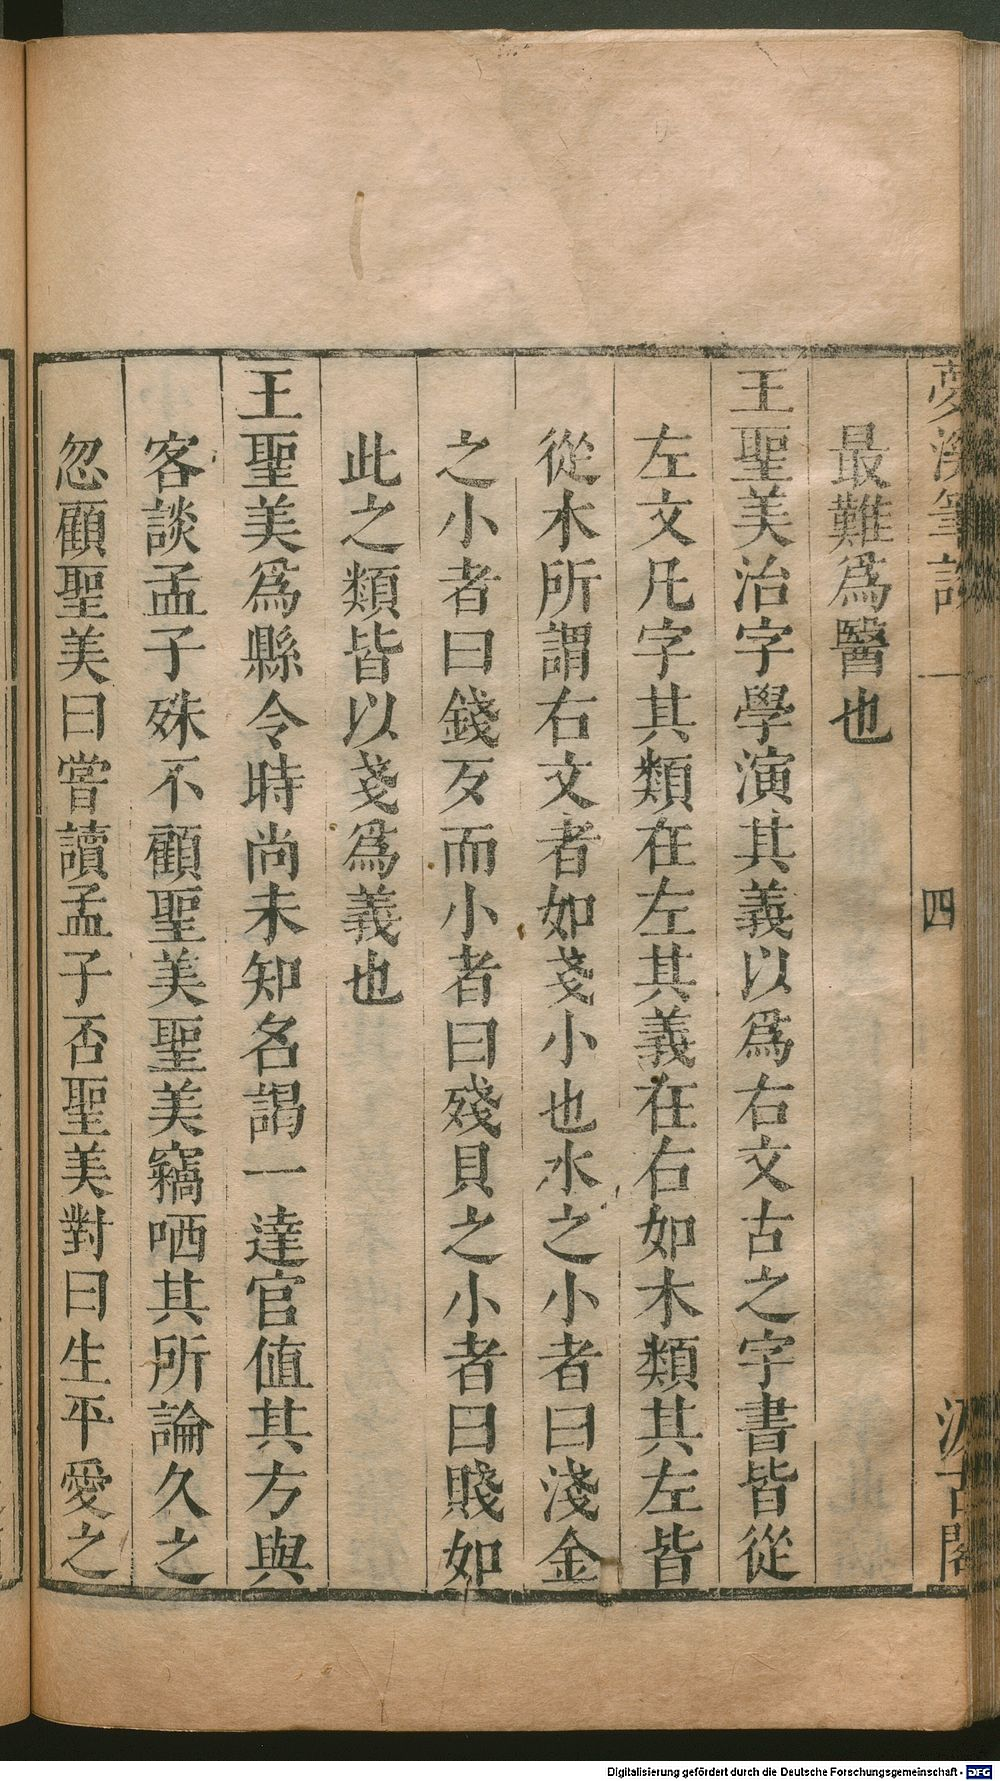 夢溪筆談 一 四 汲古閣
最難爲醫也
王聖美治字學演其義以爲右文古之字書皆從
左文凡字其類在左其義在右如木類其左皆
從木所謂右文者如戔小也水之小者曰淺金
之小者曰錢歹而小者曰殘貝之小者曰賤如
此之類皆以戔爲義也
王聖美爲縣令時尚未知名謁一達官值其方與
客談孟子殊不顧聖美聖美竊哂其所論久之
忽顧聖美曰嘗讀孟子否聖美對曰生平愛之
Digitalisierung gefördert durch die Deutsche Forschungsgemeinschaft - DFG